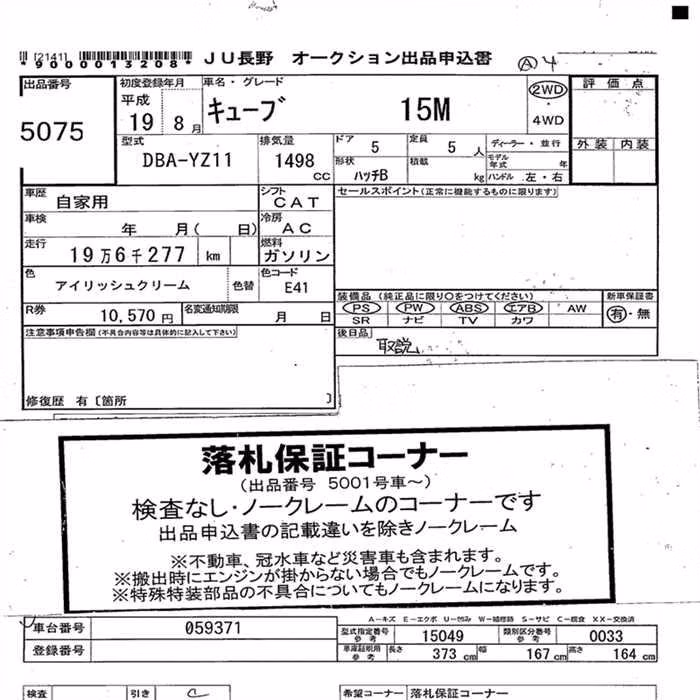 [2141]
*9000013208*
JU長野 オークション出品申込書
Ⓐ4
出品番号 5075
初度登録年月 平成 19 8月
車名・グレード キューブ 15M
2WD ・ 4WD
評価点
外装 内装
型式 DBA-YZ11
排気量 1498 CC
ドア 5
定員 5 人
ディーラー・並行
形状 ハッチB
積載 kg
モデル年式 年
ハンドル 左・右
車歴 自家用
シフト CAT
セールスポイント(正常に機能するものに限ります)
車検 年 月( 日)
冷房 AC
走行 19万6千277 km
燃料 ガソリン
色 アイリッシュクリーム 色替
色コード E41
装備品(純正品に限り○をつけてください)
新車保証書
PS PW ABS エアB AW
有・無
SR ナビ TV カワ
R券 10,570円
名変通知期限 月 日
後日品 取説
注意事項申告欄(不具合内容等は具体的に記入して下さい)
修復歴 有〔箇所 〕
落札保証コーナー
(出品番号 5001号車～)
検査なし・ノークレームのコーナーです
出品申込書の記載違いを除きノークレーム
※不動車、冠水車など災害車も含まれます。
※搬出時にエンジンが掛からない場合でもノークレームです。
※特殊特装部品の不具合についてもノークレームになります。
A-キズ E-エクボ U-凹み W-補修跡 S-サビ C-腐食 XX-交換済
車台番号 059371
型式指定番号 参考 15049
類別区分番号 参考 0033
登録番号
車庫証明用 参考 長さ 373 cm 幅 167 cm 高さ 164 cm
検査 引き C
希望コーナー 落札保証コーナー